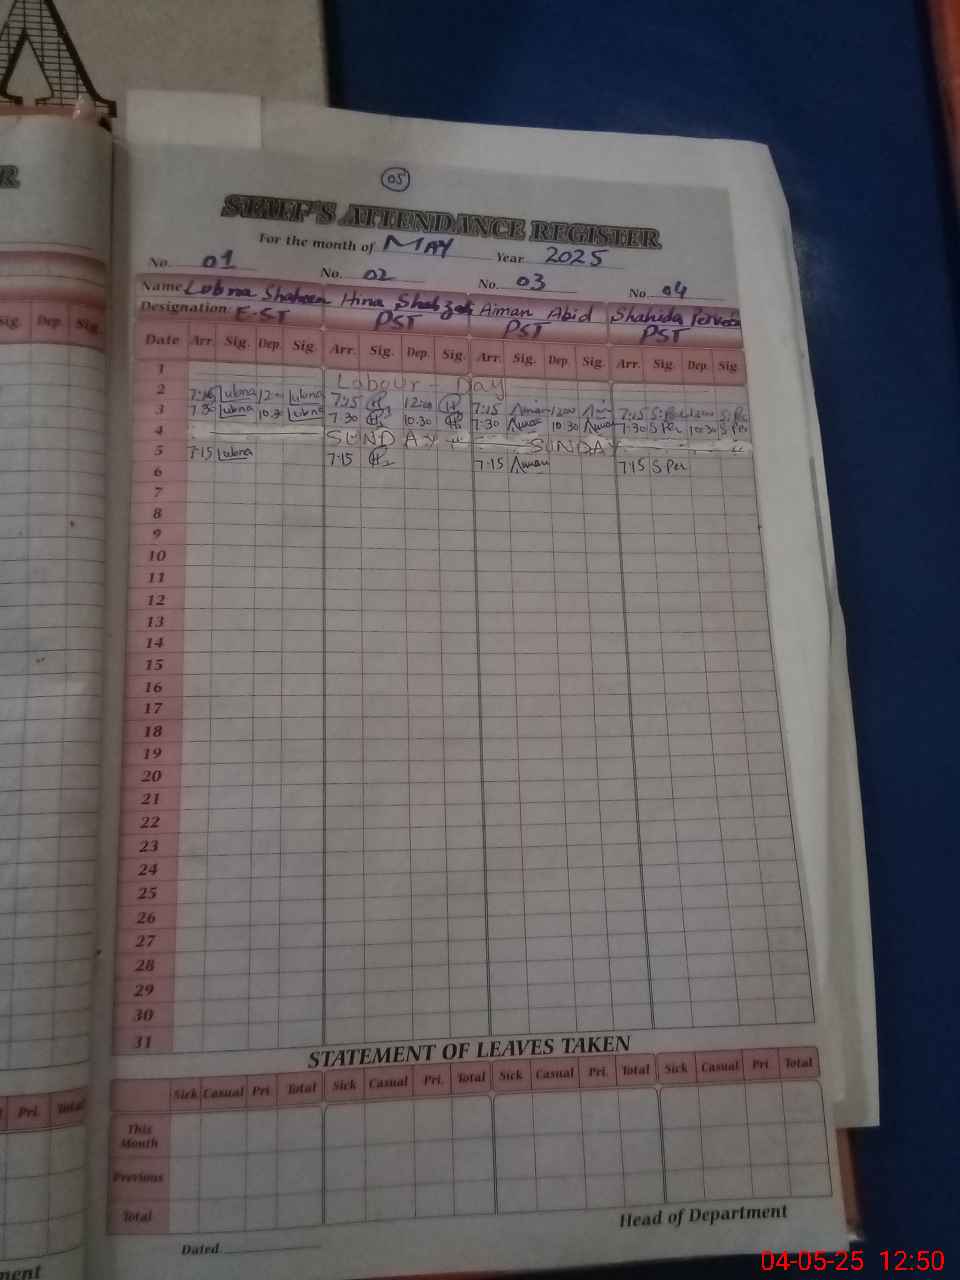 05
STAFF'S ATTENDANCE REGISTER
For the month of MAY Year 2025
No. 01 No. 02 No. 03 No. 04
Name Lubna Shaheen Hina Shahzadi Aiman Abid Shahida Perveen
Designation: E-ST PST PST PST
Date Arr. Sig. Dep. Sig. Arr. Sig. Dep. Sig. Arr. Sig. Dep. Sig. Arr. Sig. Dep. Sig.
1 Labour - Day
2 7:15 Lubna 12 Lubna 7:15 12:00 7:15 Aiman 1200 7:15 S.Per 1200 S.Pe
3 7:30 Lubna 10.30 Lubna 7:30 10.30 7:30 Aiman 10:30 Aiman 7:30 S Per 10:30 S Per
4 SUNDAY SUNDAY
5 7:15 Lubna 7:15 7:15 Aiman 7:15 S Per
6
7
8
9
10
11
12
13
14
15
16
17
18
19
20
21
22
23
24
25
26
27
28
29
30
31
STATEMENT OF LEAVES TAKEN
Sick Casual Pri. Total Sick Casual Pri. Total Sick Casual Pri. Total Sick Casual Pri. Total
This
Month
Previous
Total
Head of Department
Dated
R
Sig. Dep. Sig.
Pri. Total
04-05-25 12:50